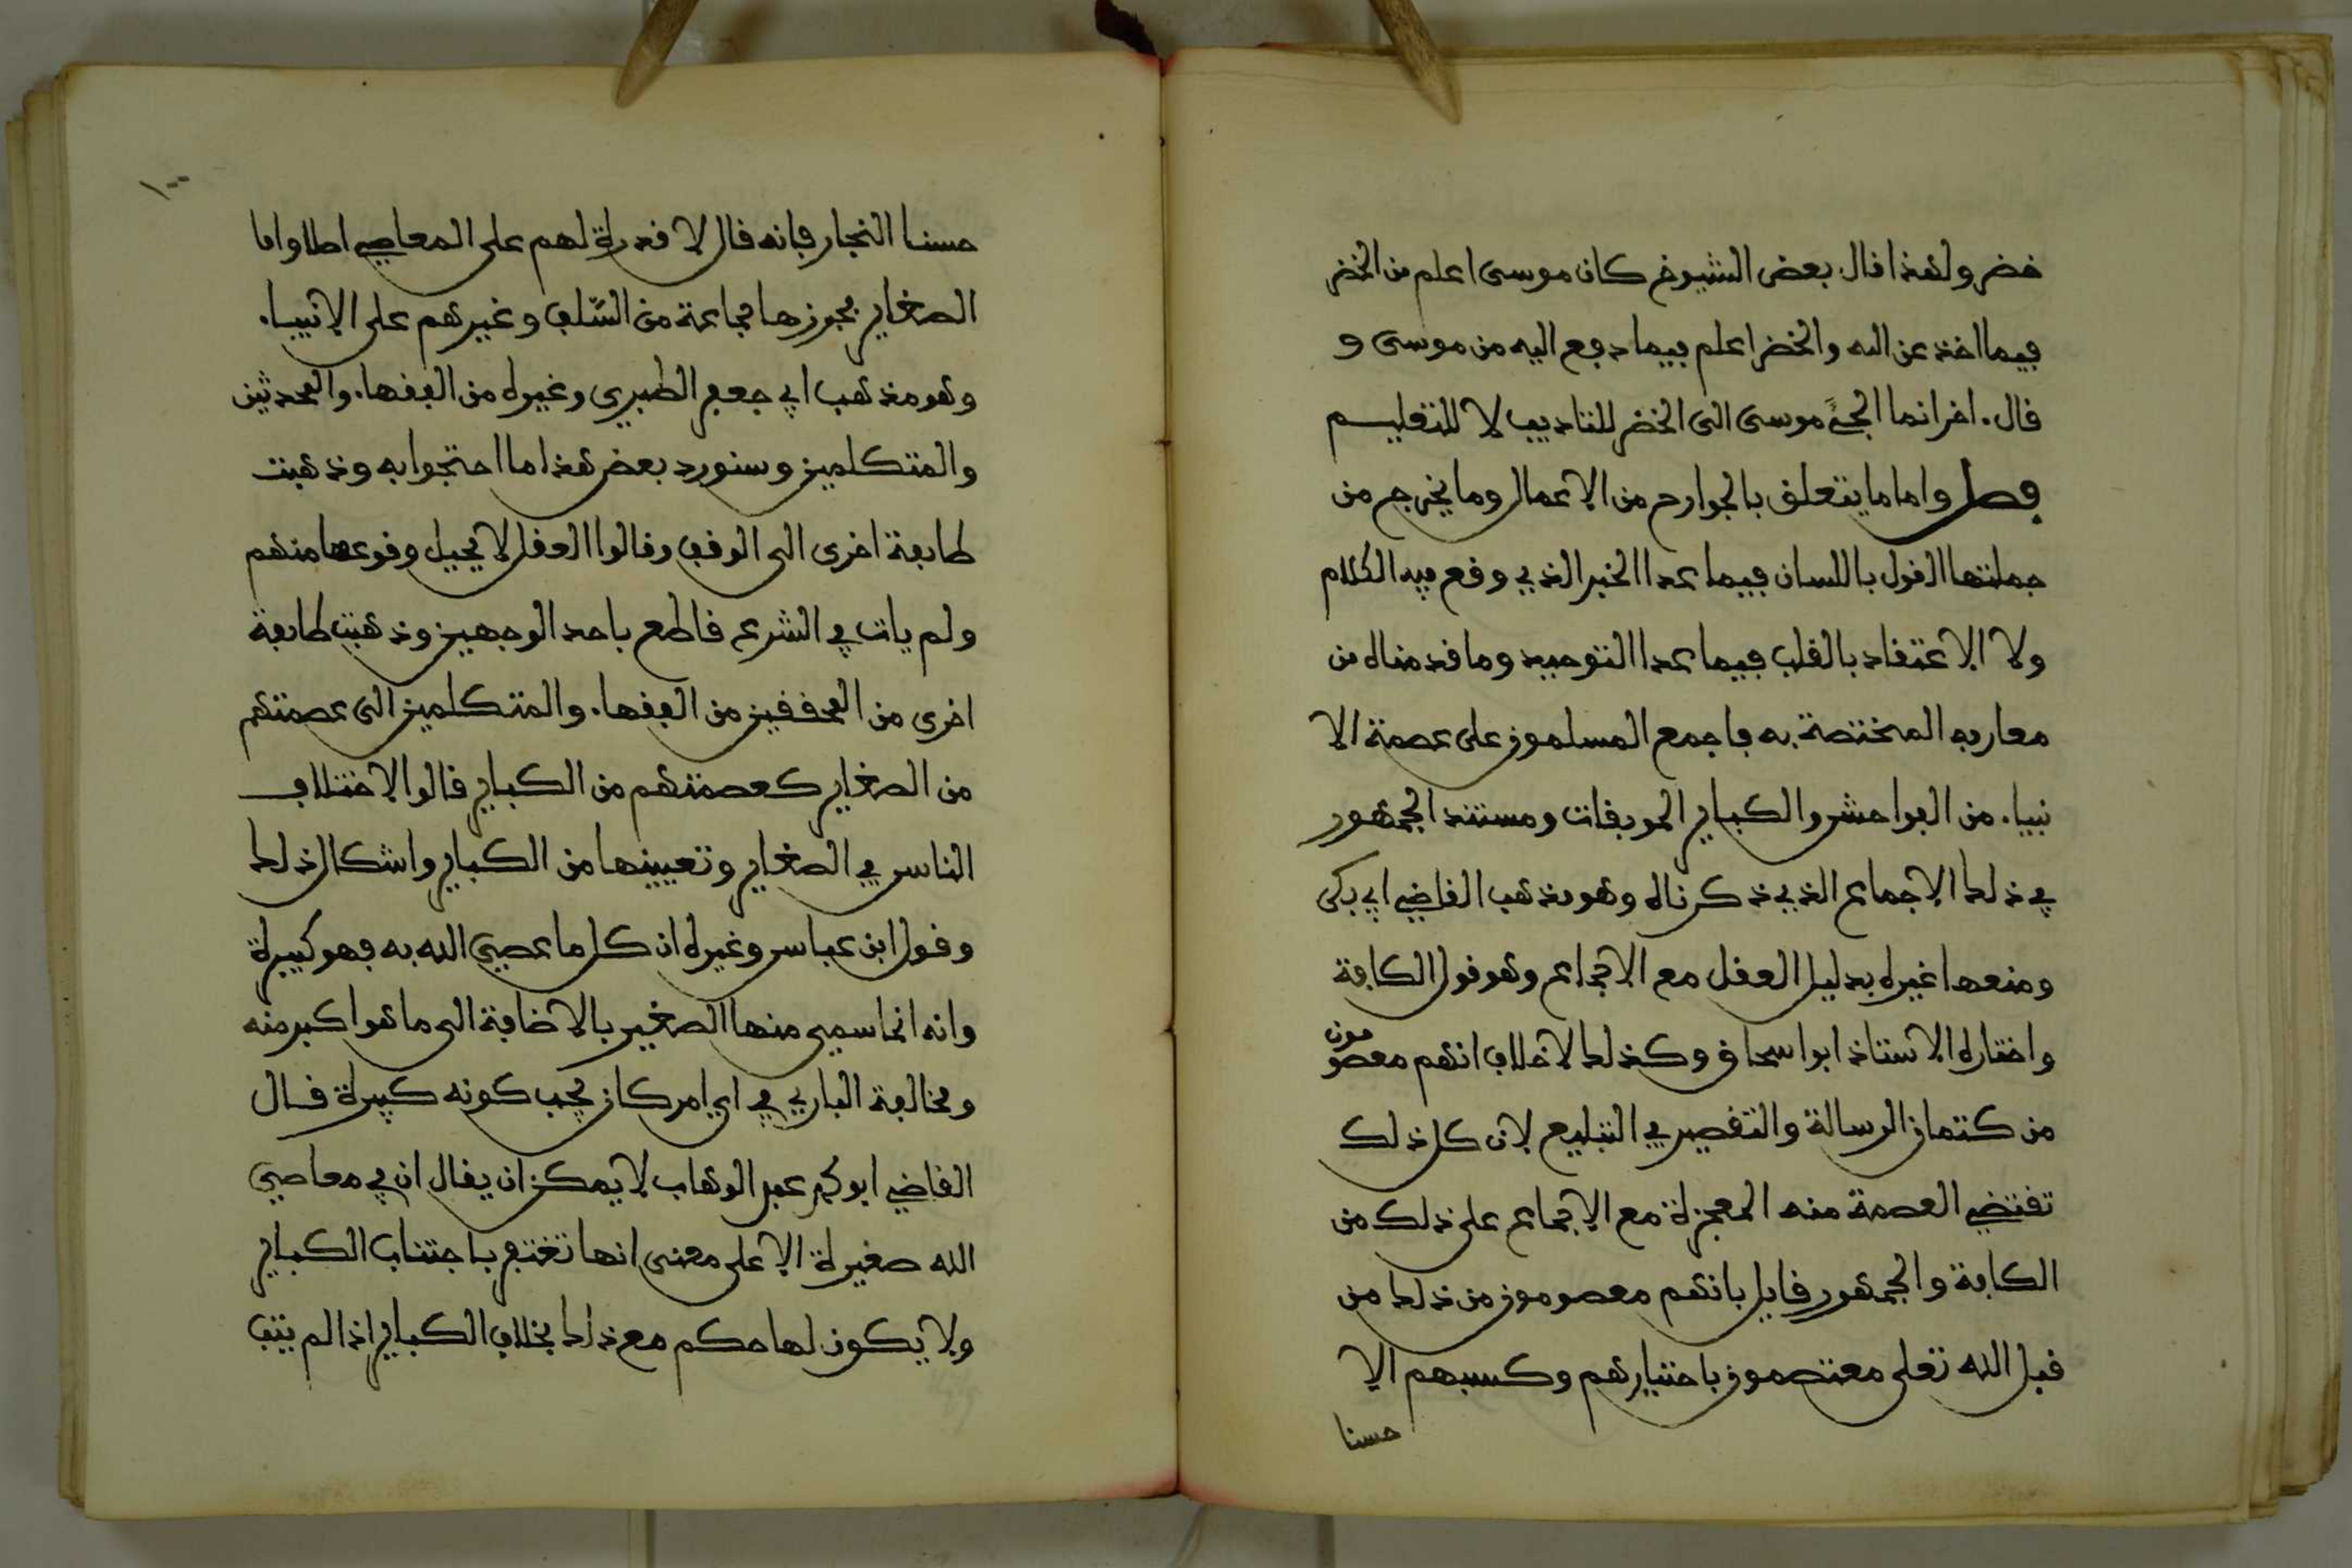 خضر ولهذا قال بعض الشيوخ كان موسى اعلم من الخضر
فيما اخذ عن الله والخضر اعلم فيما دفع اليه من موسى و
قال. اخر انما الجئ موسى الى الخضر للتاديب لا للتعليم
فصل واما ما يتعلق بالجوارح من الاعمال وما يخرج من
جملتها القول باللسان فيما عدا الخبر الذي وقع فيه الكلام
ولا الاعتقاد بالقلب فيما عدا التوحيد وما قدمناه من
معارفه المختصة به فاجمع المسلمون على عصمة الا
نبيا. من الفواحش والكباير الموبقات ومستند الجمهور
في ذلك الاجماع الذي ذكرناه وهو مذهب القاضي ابي بكر
ومنعها غيره بدليل العقل مع الاجماع وهو قول الكافة
واختاره الاستاذ ابو اسحاق وكذلك لا خلاف انهم معصومون
من كتمان الرسالة والتقصير في التبليغ لان كل ذلك
تقتضي العصمة منه المعجزة مع الاجماع على ذلك من
الكافة والجمهور قايل بانهم معصومون من ذلك من
قبل الله تعلى معتصمون باختيارهم وكسبهم الا
حسنا
١٠٠
حسنا النجار فانه قال لا قدرة لهم على المعاصي اصلا واما
الصغاير فجوزها جماعة من السّلف وغيرهم على الانبيا.
وهو مذهب ابي جعفر الطبري وغيره من الفقها. والمحدثين
والمتكلمين وسنورد بعض هذا ما احتجوا به وذهبت
طايفة اخرى الى الوقف وقالوا العقل لا يحيل وقوعها منهم
ولم يات في الشرع قاطع باحد الوجهين وذهبت طايفة
اخرى من المحققين من الفقها. والمتكلمين الى عصمتهم
من الصغاير كعصمتهم من الكباير قالوا لاختلاف
الناس في الصغاير وتعيينها من الكباير واشكال ذلك
وقول ابن عباس وغيره ان كل ما عصي الله به فهو كبيرة
وانه انما سمي منها الصغير بالاضافة الى ما هو اكبر منه
ومخالفة الباري في اي امر كان يجب كونه كبيرة قال
القاضي ابو محمد عبد الوهاب لا يمكن ان يقال ان في معاصي
الله صغيرة الا على معنى انها تغتفر باجتناب الكباير
ولا يكون لها حكم مع ذلك بخلاف الكباير اذا لم يتب